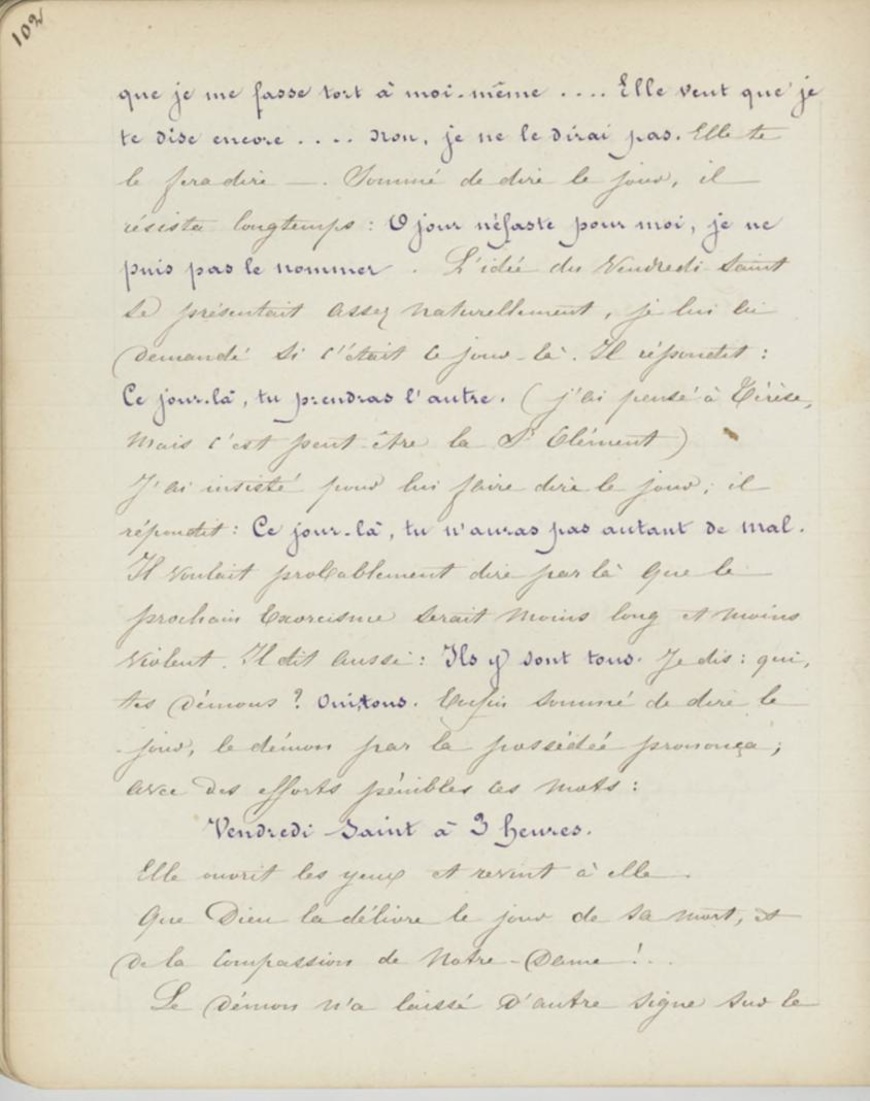 102
que je me fasse tort à moi-même .... Elle veut que je
te dise encore .... Non, je ne le dirai pas. Elle te
le fera dire —. Sommé de dire le jour, il
résista longtemps : O jour néfaste pour moi, je ne
puis pas le nommer . L'idée du Vendredi Saint
se présentait assez naturellement, je lui ai
demandé si c'était ce jour-là. Il répondit :
Ce jour-là, tu prendras l'autre. ( j'ai pensé à Térèse,
mais c'est peut-être la St Clément )
J'ai insisté pour lui faire dire le jour ; il
répondit : Ce jour-là, tu n'auras pas autant de mal.
Il voulait probablement dire par là que le
prochain Exorcisme serait moins long et moins
violent. Il dit aussi : Ils y sont tous. Je dis : qui,
tes démons ? Oui, tous. Enfin sommé de dire le
jour, le démon par la possédée prononça ;
avec des efforts pénibles ces mots :
Vendredi-Saint à 3 heures.
Elle ouvrit les yeux et revint à elle .
Que Dieu la délivre le jour de sa mort, et
de la Compassion de Notre-Dame !..
Le démon n'a laissé d'autre signe sur le